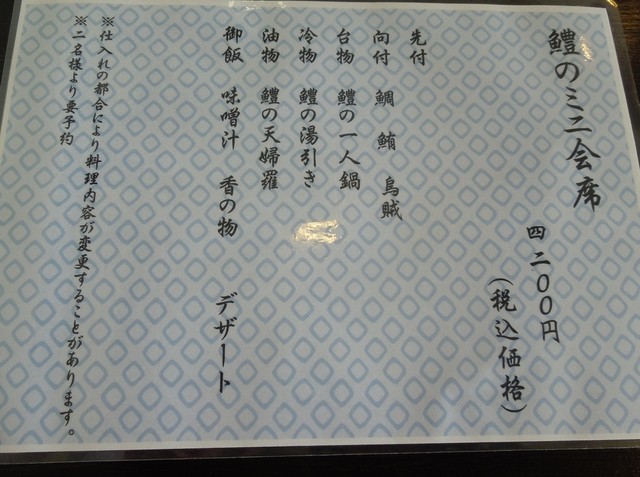 鱧のミニ会席
四二００円
（税込価格）
先付
向付　鯛　鮪　烏賊
台物　鱧の一人鍋
冷物　鱧の湯引き
油物　鱧の天婦羅
御飯　味噌汁　香の物　デザート
※仕入れの都合により料理内容が変更することがあります。
※二名様より要予約